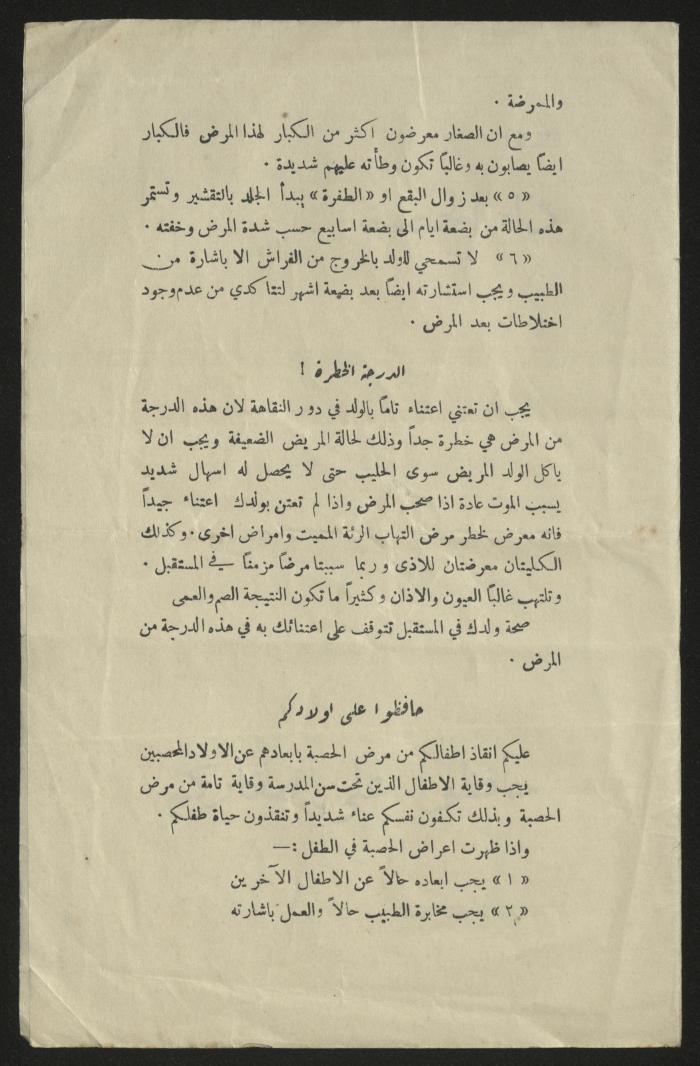 والممرضة ٠
ومع ان الصغار معرضون اكثر من الكبار لهذا المرض فالكبار
ايضاً يصابون به وغالباً تكون وطأته عليهم شديدة ٠
« ٥ » بعد زوال البقع او « الطفرة » يبدأ الجلد بالتقشير وتستمر
هذه الحالة من بضعة ايام الى بضعة اسابيع حسب شدة المرض وخفته ٠
« ٦ » لا تسمحي للولد بالخروج من الفراش الا باشارة من
الطبيب ويجب استشارته ايضاً بعد بضعة اشهر لتتاكدي من عدم وجود
اختلاطات بعد المرض ٠
الدرجة الخطرة !
يجب ان تعتني اعتناء تاماً بالولد في دور النقاهة لان هذه الدرجة
من المرض هي خطرة جداً وذلك لحالة المريض الضعيفة ويجب ان لا
ياكل الولد المريض سوى الحليب حتى لا يحصل له اسهال شديد
يسبب الموت عادة اذا صحب المرض واذا لم تعتن بولدك اعتناء جيداً
فانه معرض لخطر مرض التهاب الرئة المميت وامراض اخرى ٠ وكذلك
الكليتان معرضتان للاذى وربما سببتا مرضاً مزمناً في المستقبل ٠
وتلتهب غالباً العيون والاذان وكثيراً ما تكون النتيجة الصم والعمى
صحة ولدك في المستقبل تتوقف على اعتنائك به في هذه الدرجة من
المرض ٠
حافظوا على اولادكم
عليكم انقاذ اطفالكم من مرض الحصبة بابعادهم عن الاولاد المحصبين
يجب وقاية الاطفال الذين تحت سن المدرسة وقاية تامة من مرض
الحصبة وبذلك تكفون نفسكم عناء شديداً وتنقذون حياة طفلكم ٠
واذا ظهرت اعراض الحصبة في الطفل :—
« ١ » يجب ابعاده حالاً عن الاطفال الآخرين
« ٢ » يجب مخابرة الطبيب حالاً والعمل باشارته